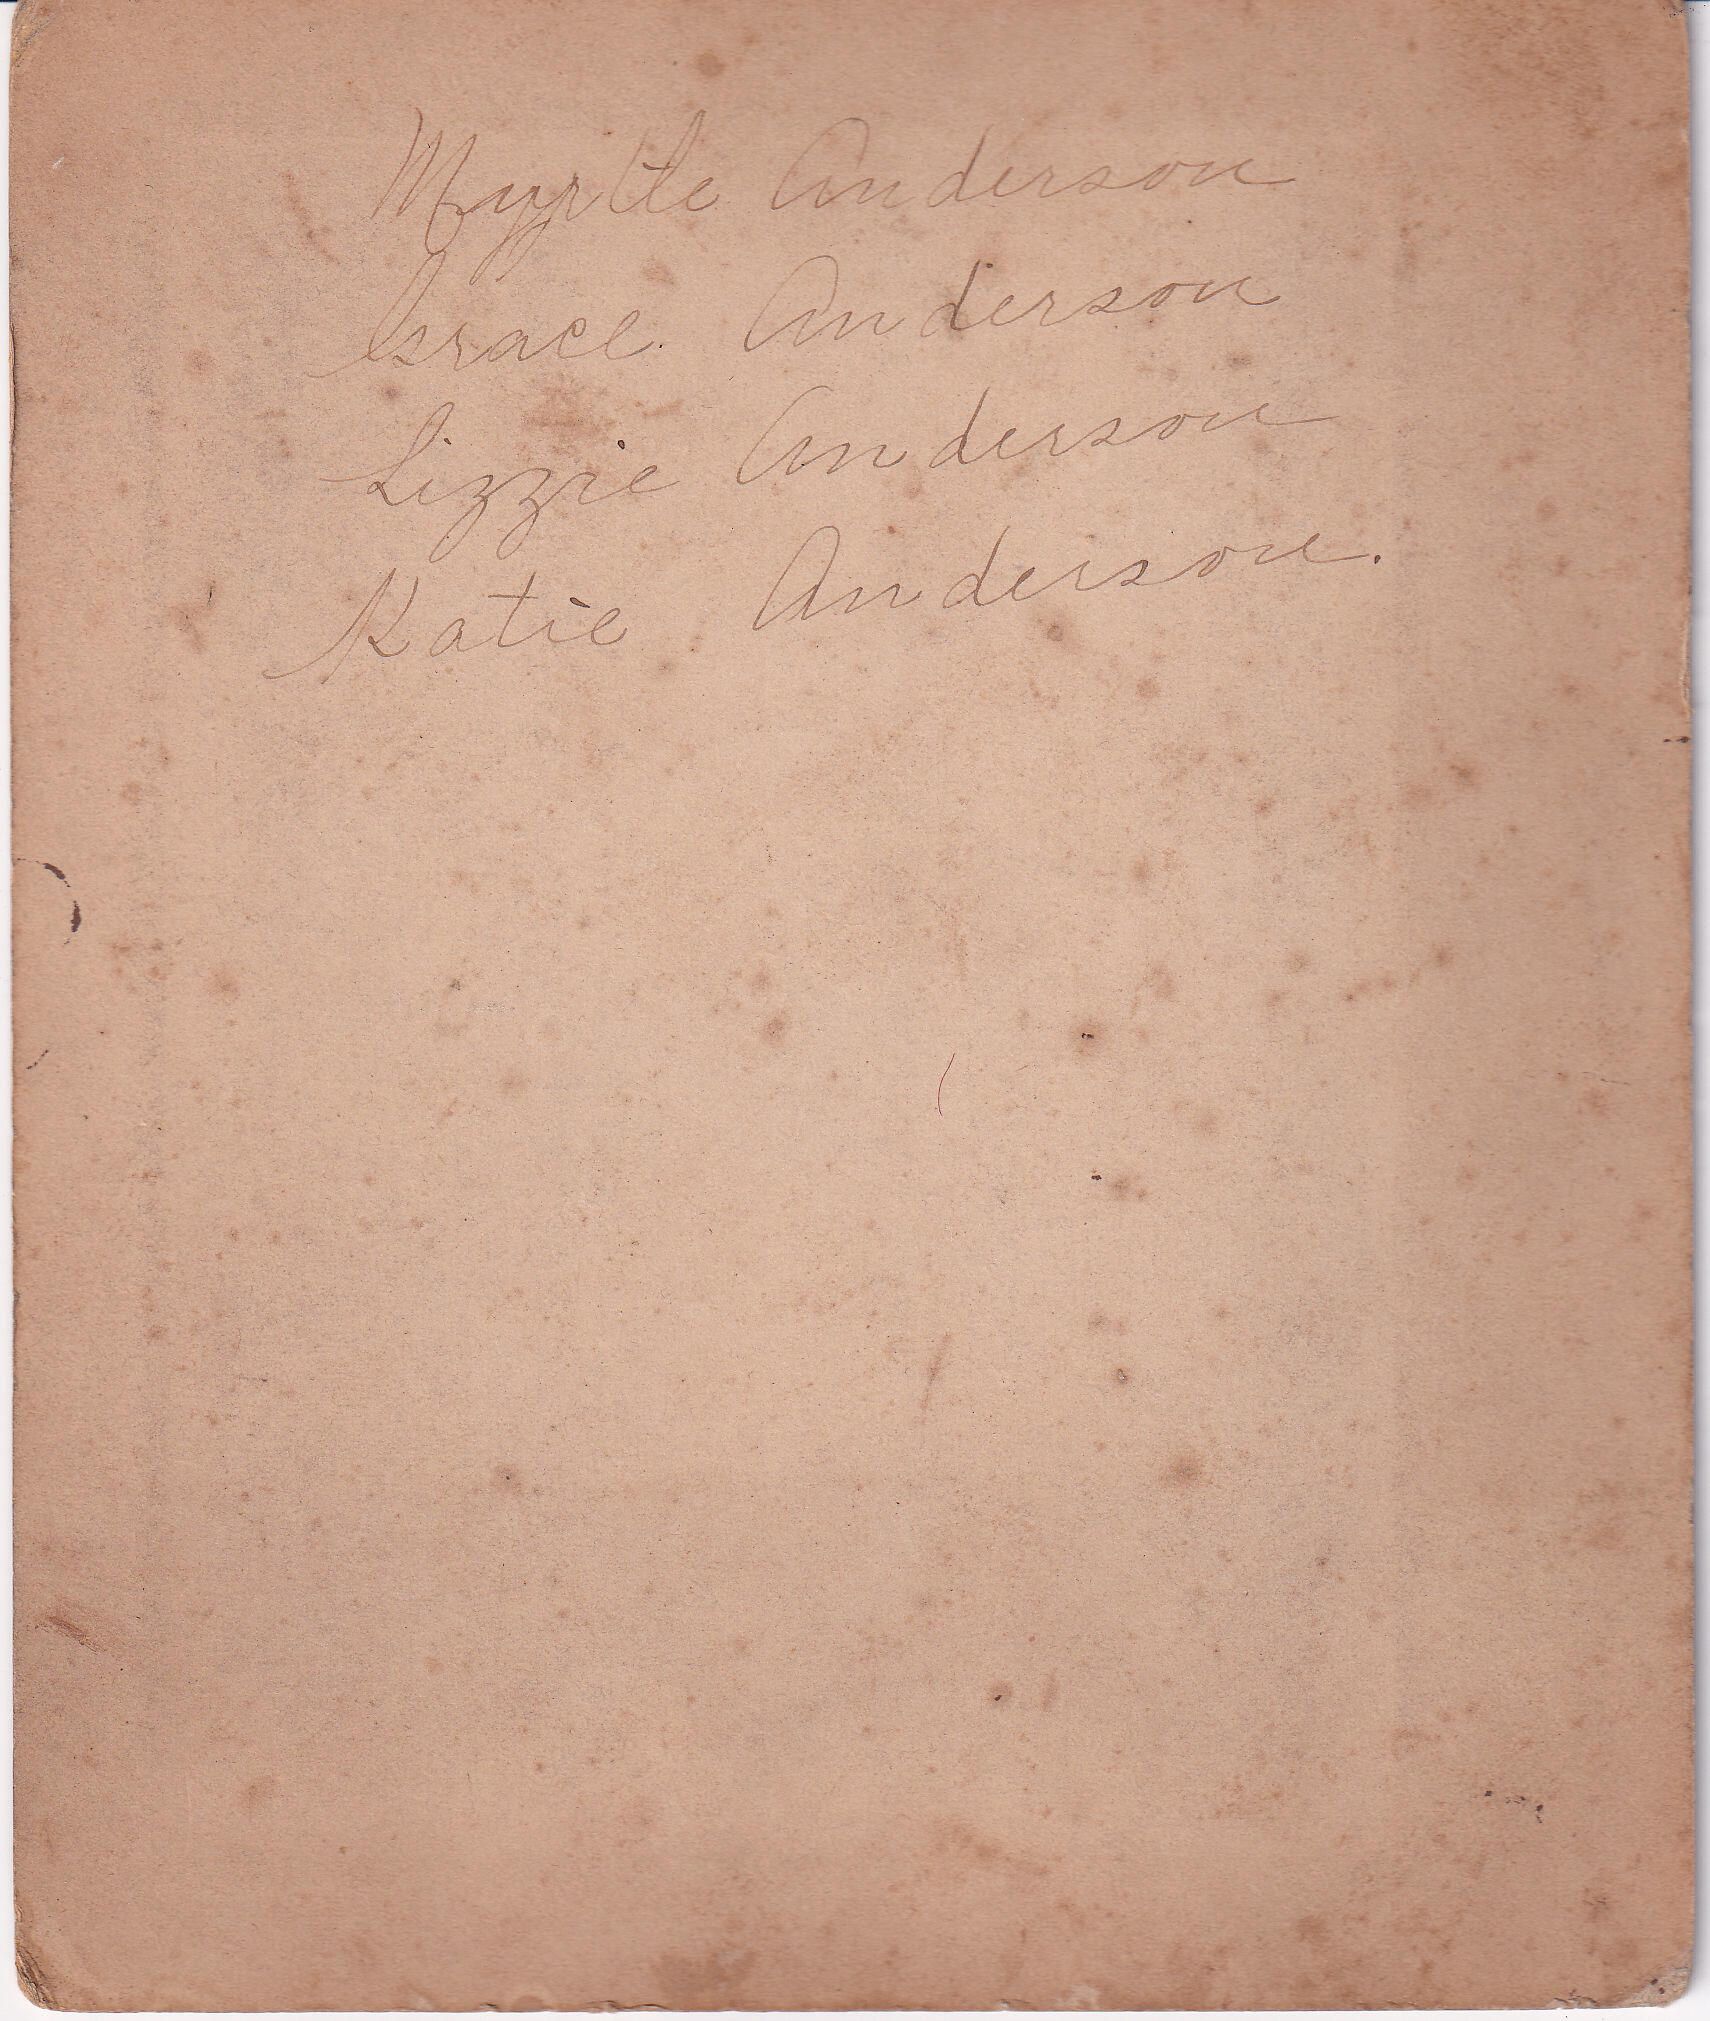 Myrtle Anderson
Grace Anderson
Lizzie Anderson
Katie Anderson.